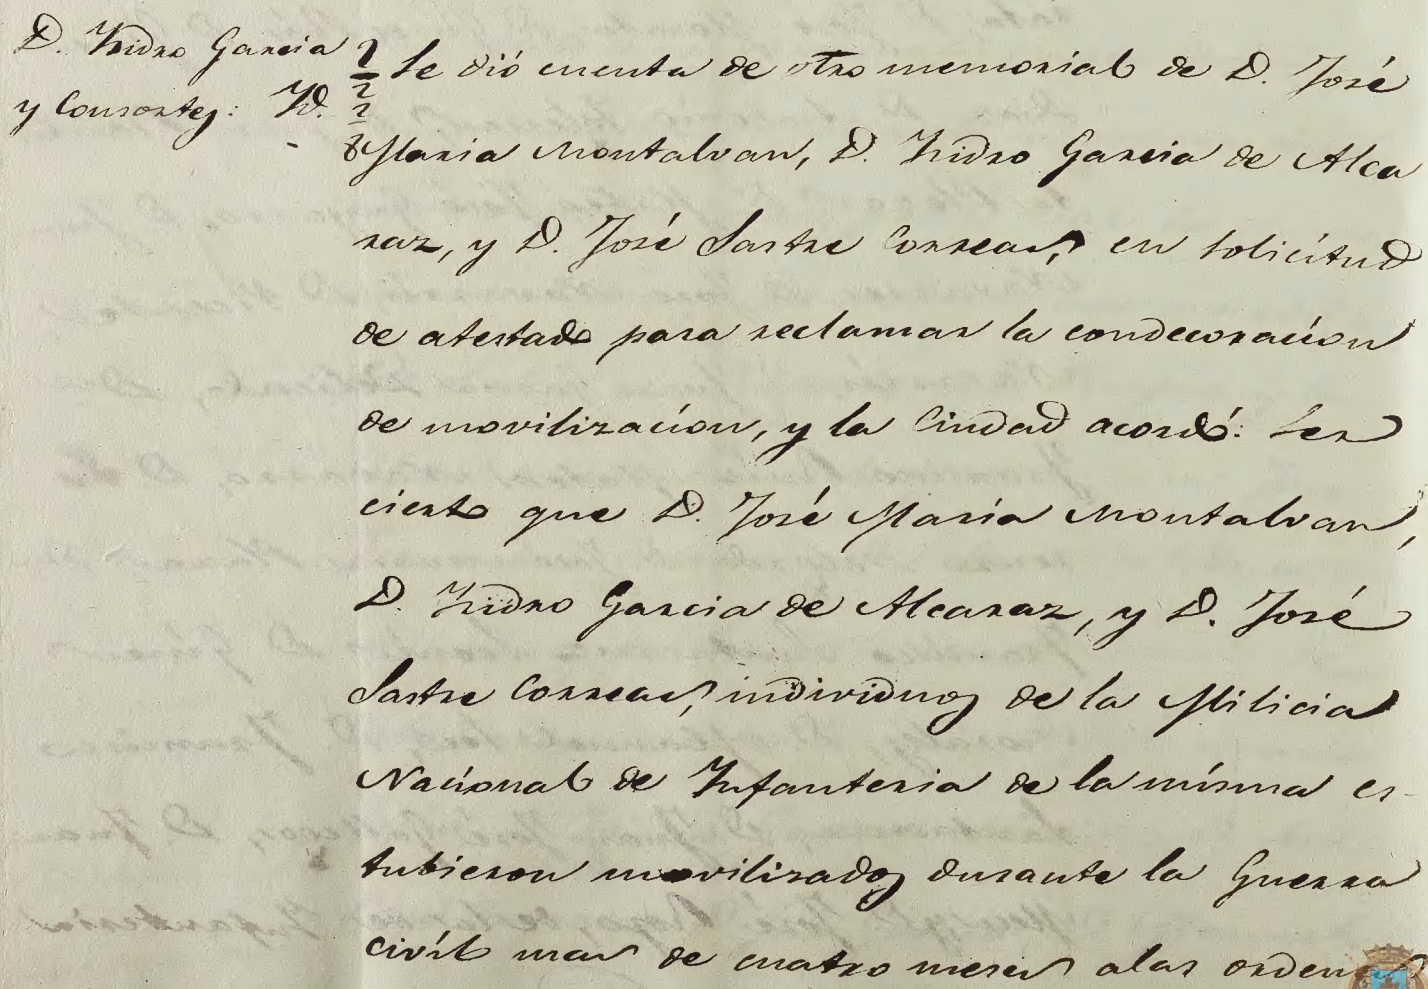 D. Ysidro Garcia
y Consortes: Yd.
Se dió cuenta de otro memorial de D. José
Maria Montalvan, D. Ysidro Garcia de Alca
raz, y D. José Sastre Correas, en solicitud
de atestado para reclamar la condecoracion
de movilizacion, y la Ciudad acordó: Ser
cierto que D. José Maria Montalvan,
D. Ysidro Garcia de Alcaraz, y D. José
Sastre Correas, individuos de la Milicia
Nacional de Infanteria de la misma es-
tubieron movilizados durante la Guerra
civil mas de cuatro meses alas ordenes